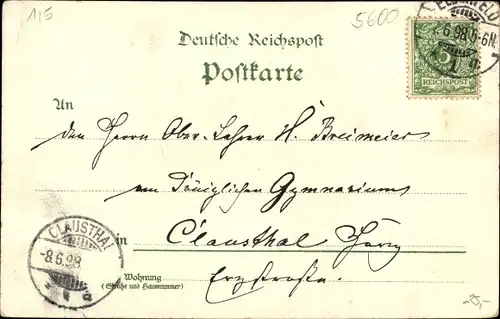 115
5600
Deutsche Reichspost
Postkarte
ELBERFELD
6.98.5-6N.
1
5
REICHSPOST
An
den Herrn Ober-Lehrer H. Breimeier
am Königlichen Gymnasium
in Clausthal Harz
Erzstraße.
CLAUSTHAL
-8.6.98
Wohnung
(Straße und Hausnummer)